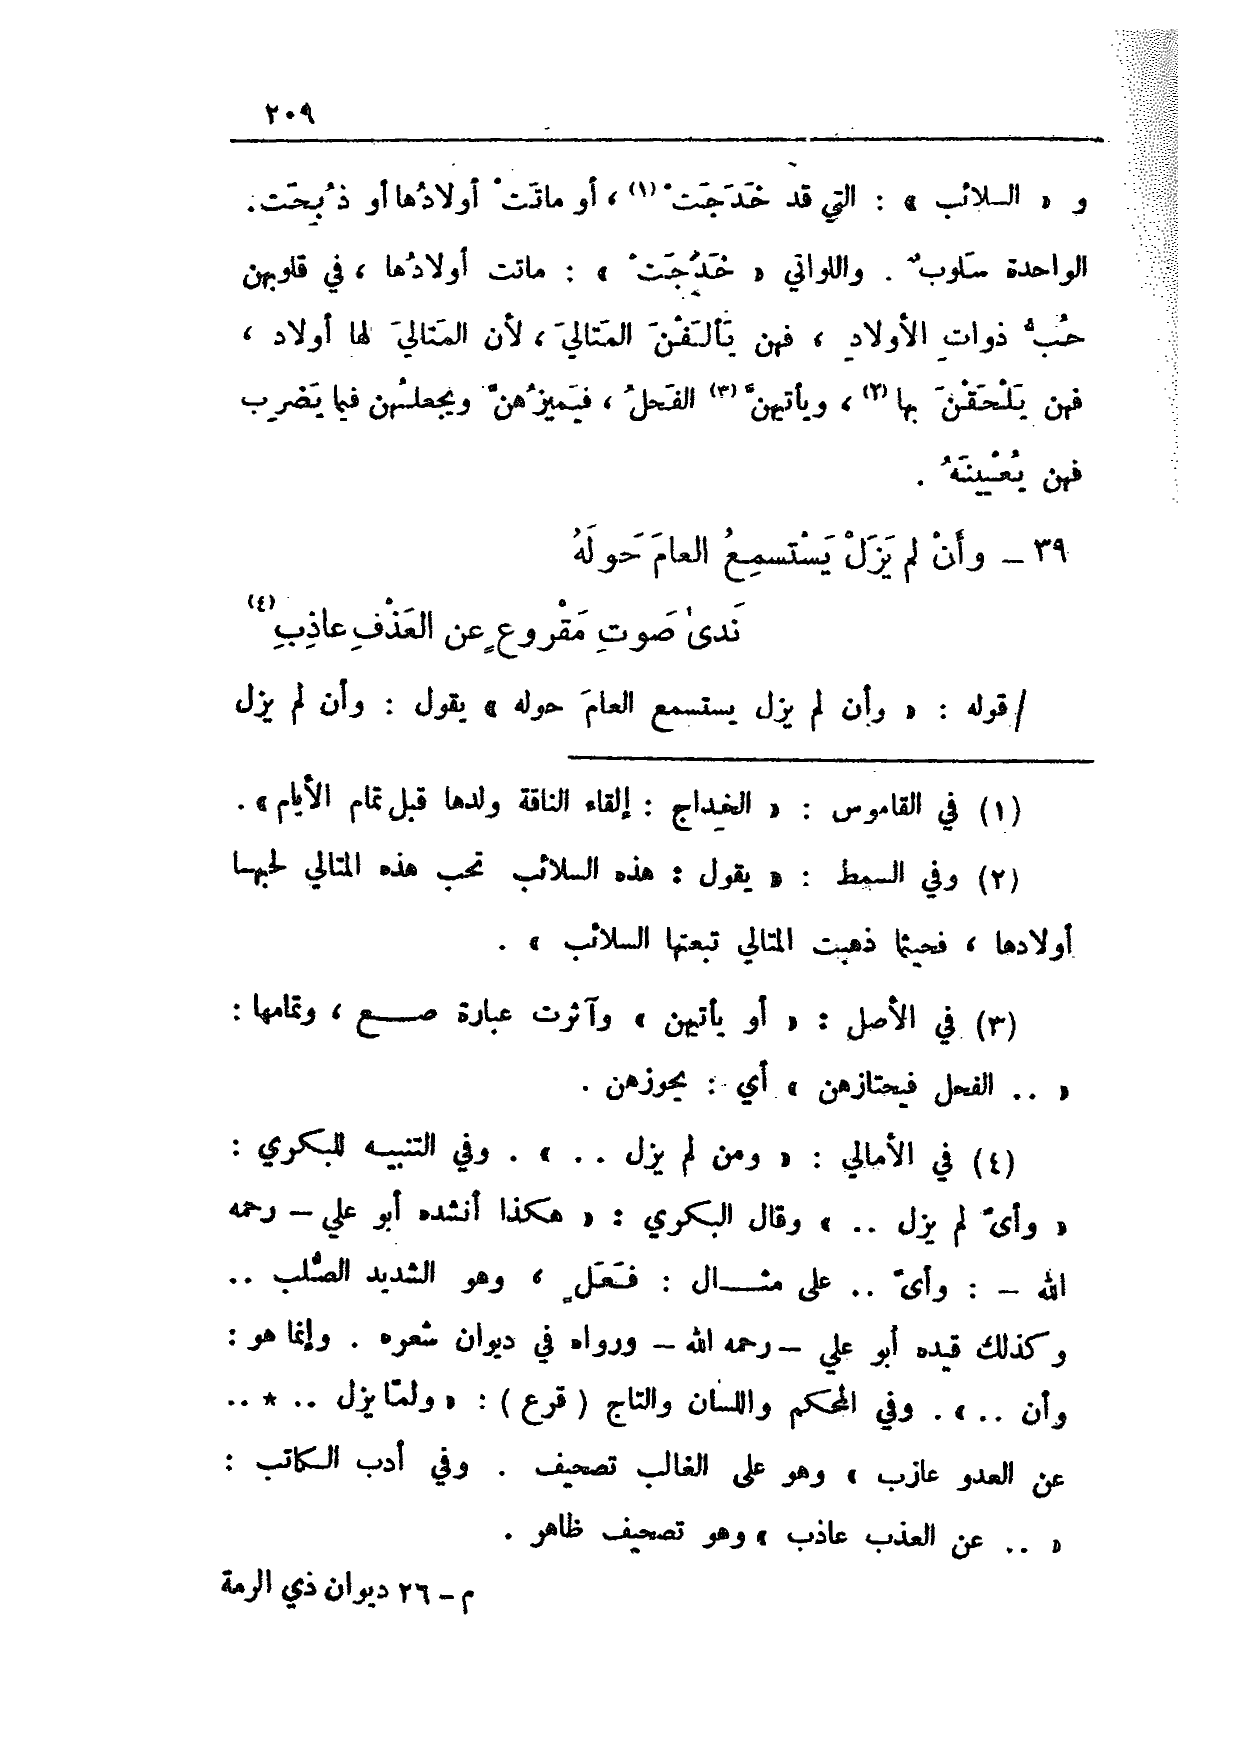 ٢٠٩
و « السلائب » : التي قد خَدَجَتْ (١) ، أو ماتَتْ أولادُها أو ذُبِحَت .
الواحدة سَلوبٌ . واللواتي « خَدَجَتْ » : ماتت أولادُها ، في قلوبهن
حُبُّ ذواتِ الأولادِ ، فهن يَألَفْنَ المَتاليَ ، لأن المَتاليَ لها أولاد ،
فهن يَلْحَقْنَ بها (٢) ، ويأتيهنَّ (٣) الفَحلُ ، فيَميزُهنَّ ويجعلُهن فيما يَضرِب
فهن يُعْيينَهُ .
٣٩ – وأنْ لم يَزَلْ يَسْتسمِعُ العامَ حَولَهُ
نَدىٰ صَوتِ مَقْروعٍ عن العَذْفِ عاذِبِ (٤)
/ قوله : « وأن لم يزل يستسمع العامَ حوله » يقول : وأن لم يزل
(١) في القاموس : « الخِداج : إلقاء الناقة ولدها قبل تمام الأيام » .
(٢) وفي السمط : « يقول : هذه السلائب تحب هذه المتالي لحبها
أولادها ، فحيثما ذهبت المتالي تبعتها السلائب » .
(٣) في الأصل : « أو يأتيهن » وآثرت عبارة صع ، وتمامها :
« .. الفحل فيحتازهن » أي : يجوزهن .
(٤) في الأمالي : « ومن لم يزل .. » . وفي التنبيه للبكري :
« وأىً لم يزل .. » وقال البكري : « هكذا أنشده أبو علي – رحمه
الله – : وأىً .. على مثال : فَعَلٍ ، وهو الشديد الصُّلب ..
وكذلك قيده أبو علي – رحمه الله – ورواه في ديوان شعره . وإنما هو :
وأن .. » . وفي المحكم واللسان والتاج ( قرع ) : « ولمّا يزل .. * ..
عن العدو عازب » وهو على الغالب تصحيف . وفي أدب الكاتب :
« .. عن العذب عاذب » وهو تصحيف ظاهر .
م – ٢٦ ديوان ذي الرمة